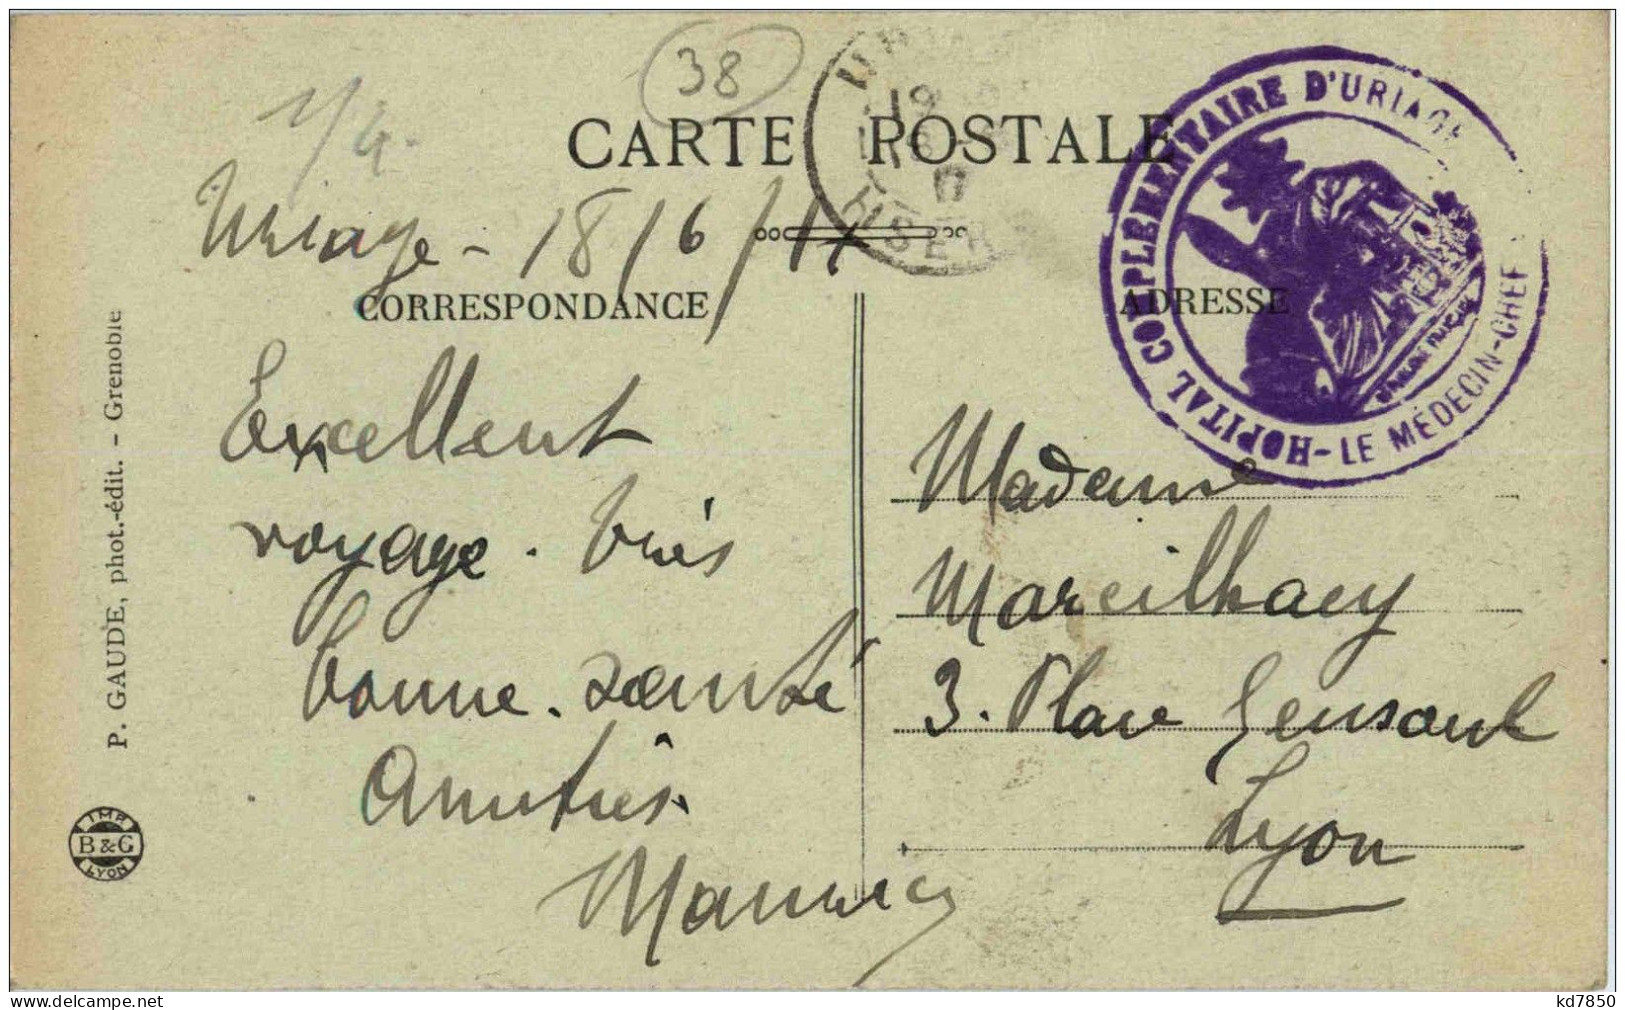 38
1/4.
CARTE POSTALE
19
17
ISERE
HOPITAL COMPLEMENTAIRE D'URIAGE
-LE MÉDECIN-CHEF
Uriage - 18/6/17
CORRESPONDANCE
ADRESSE
Excellent
voyage. très
bonne. santé
Amitiés.
Madame
Mareilhacy
3. Place Gensoul
Lyon
P. GAUDE, phot.-édit. - Grenoble
IMP
B&G
LYON
kd7850